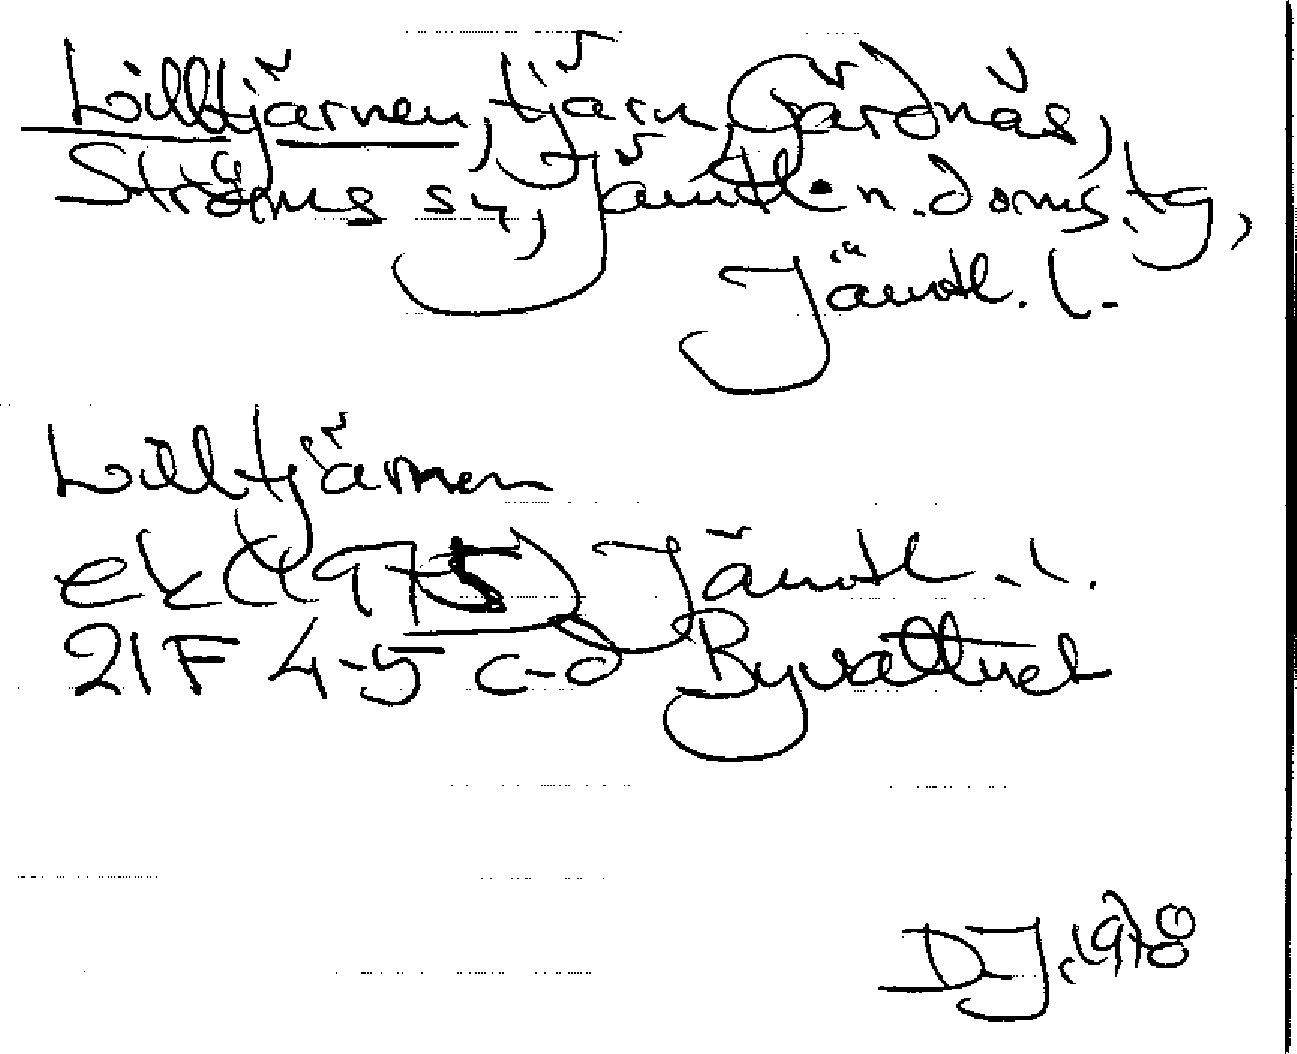 Lilltjärnen, tjärn, Gärdnäs,
Ströms sn, Jämtl:n.doms.tg,
Jämtl. l.
Lilltjärnen
ek (1975) Jämtl. l.
21F 4-5 c-d Byvattnet
DJ. 1978